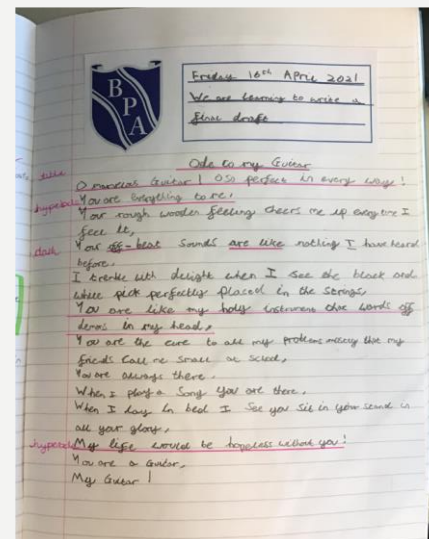 BPA
Friday 16th April 2021
We are learning to write a
final draft
Ode to my Guitar
title
O marvelous Guitar! Oso perfect in every way!
hyperbole
You are everything to me,
Your rough wooden feeling cheers me up everytime I
feel it,
Your off-beat sounds are like nothing I have heard
before.
I tremble with delight when I see the black and
white pick perfectly placed in the strings,
You are like my holy instrument that wards off
demons in my head,
You are the cure to all my problems that my
friends call me small at school,
You are always there.
When I play a song you are there,
When I lay in bed I see you sit in your stand in
all your glory,
hyperbole
My life would be hopeless without you!
You are a Guitar,
My Guitar!